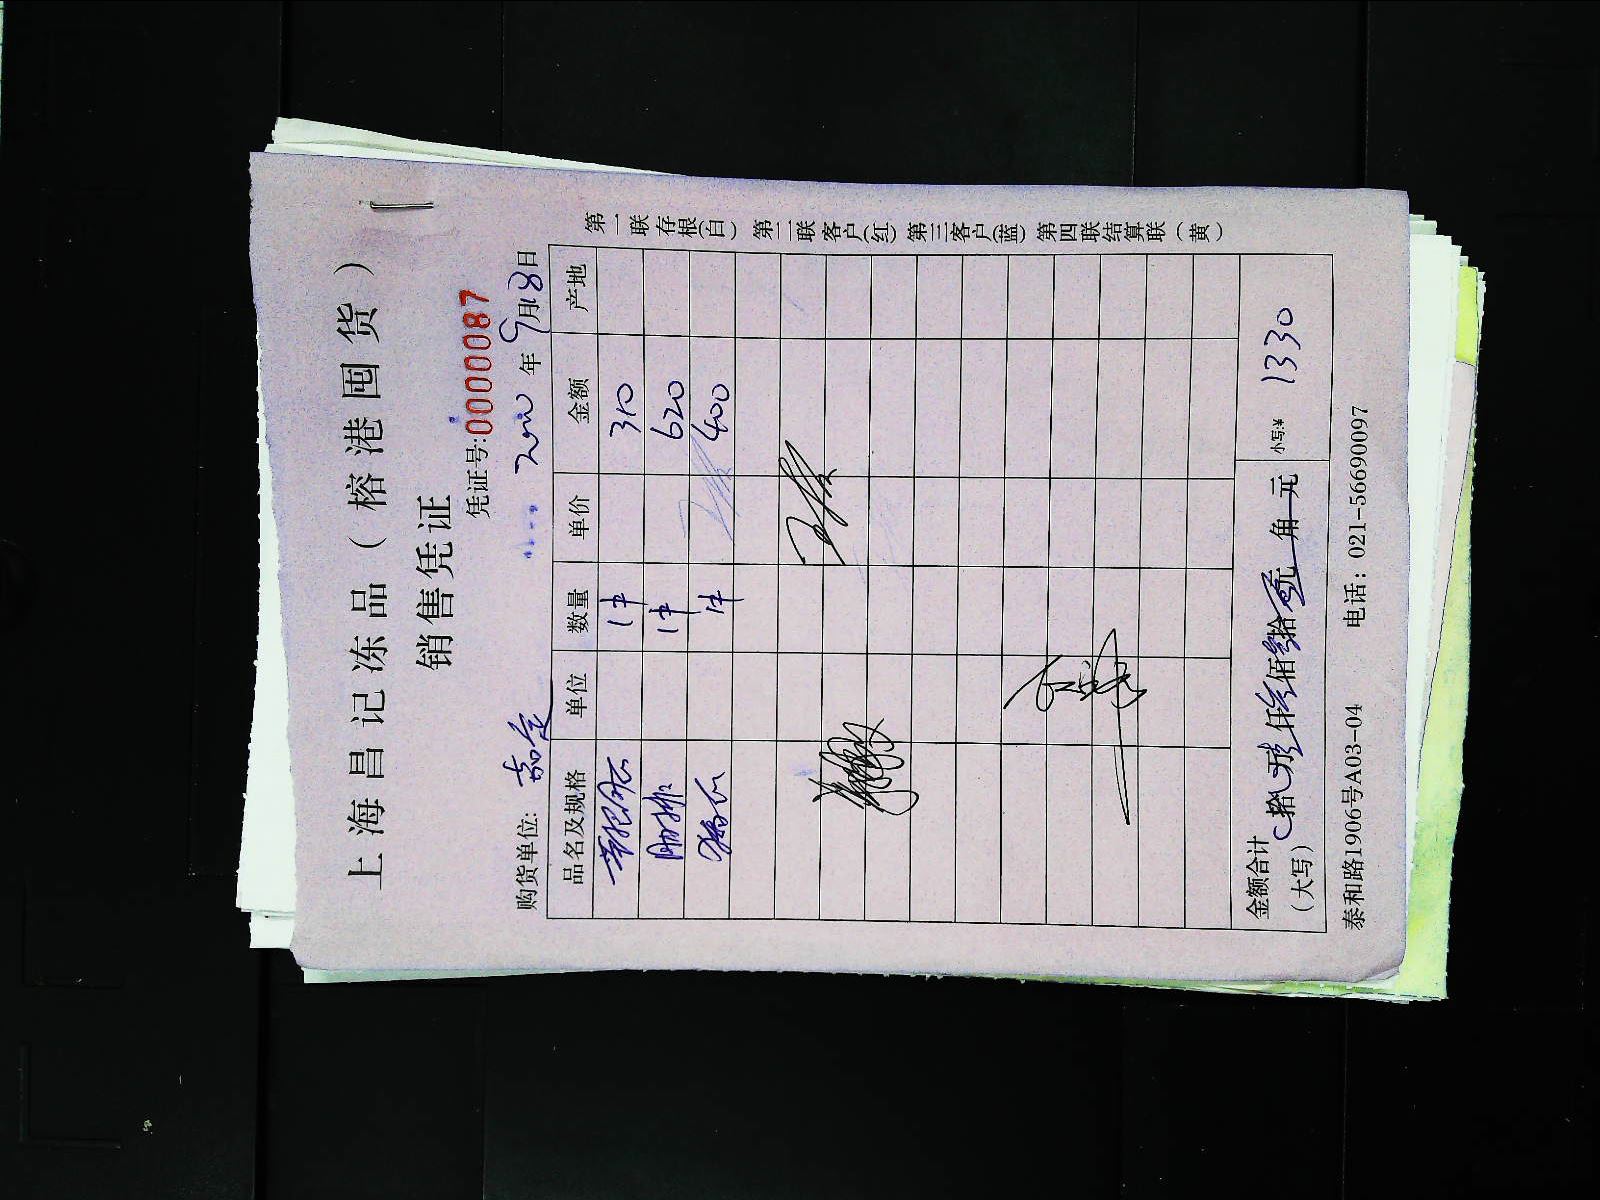 上海昌记冻品（榕港囤货）
销售凭证
凭证号:0000087
购货单位: 嘉定 年 9月18日
品名及规格 单位 数量 单价 金额 产地
1件 310
肋排 1件 620
1件 400
金额合计（大写） 拾 万 仟 佰 拾 元 角 元 小写:¥ 1330
泰和路1906号A03-04 电话：021-56690097
第一联存根(白) 第二联客户(红) 第三客户(蓝) 第四联结算联（黄）